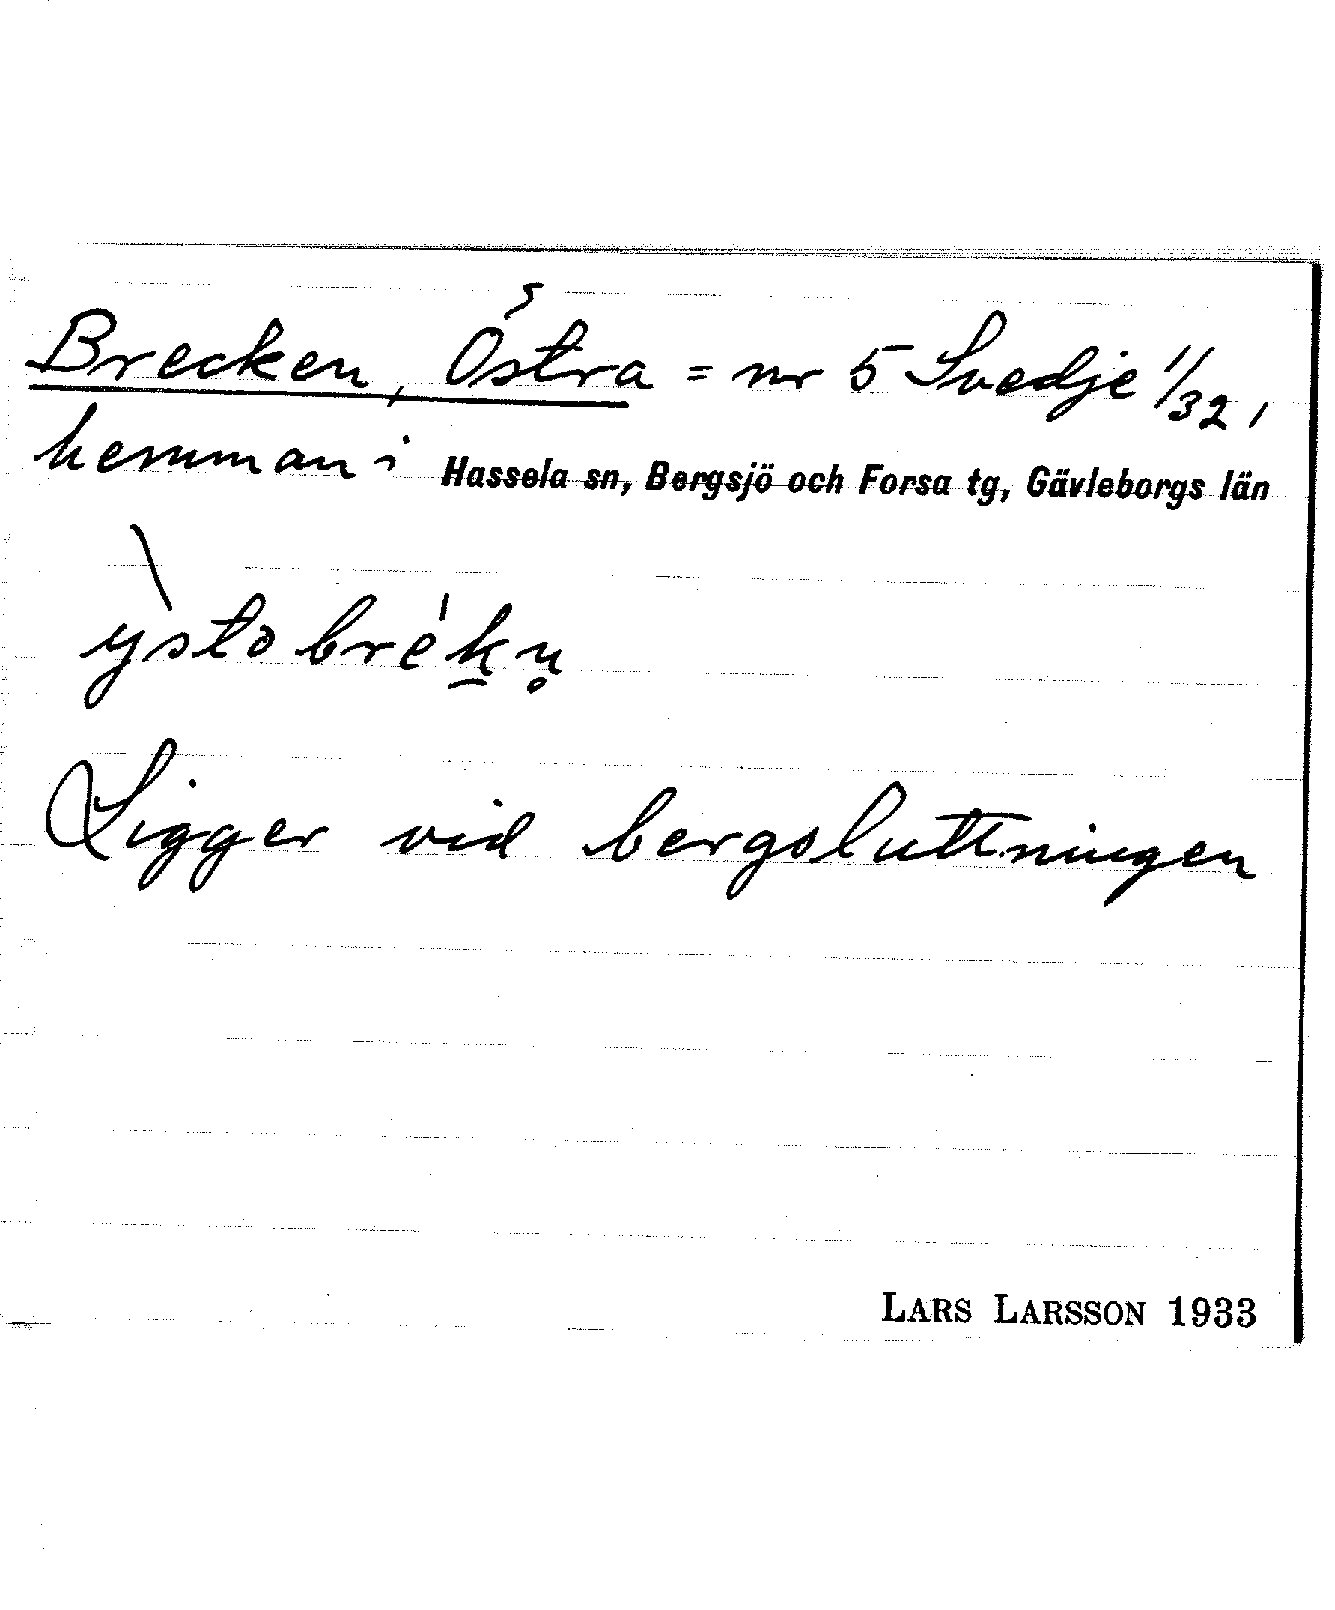 Brecken, Östra = nr 5 Svedje 1/32,
hemman i Hassela sn, Bergsjö och Forsa tg, Gävleborgs län
ỳstə brék̲n̥
Ligger vid bergsluttningen
LARS LARSSON 1933